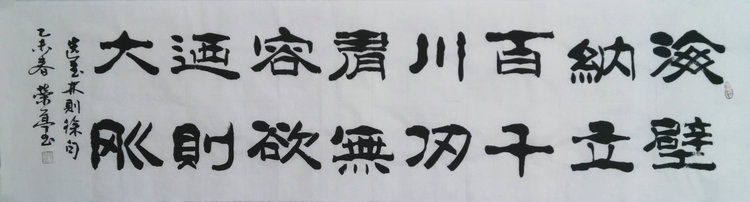 海納百川有容迺大
壁立千仞無欲則剛
林則徐句
乙未春 榮亭書